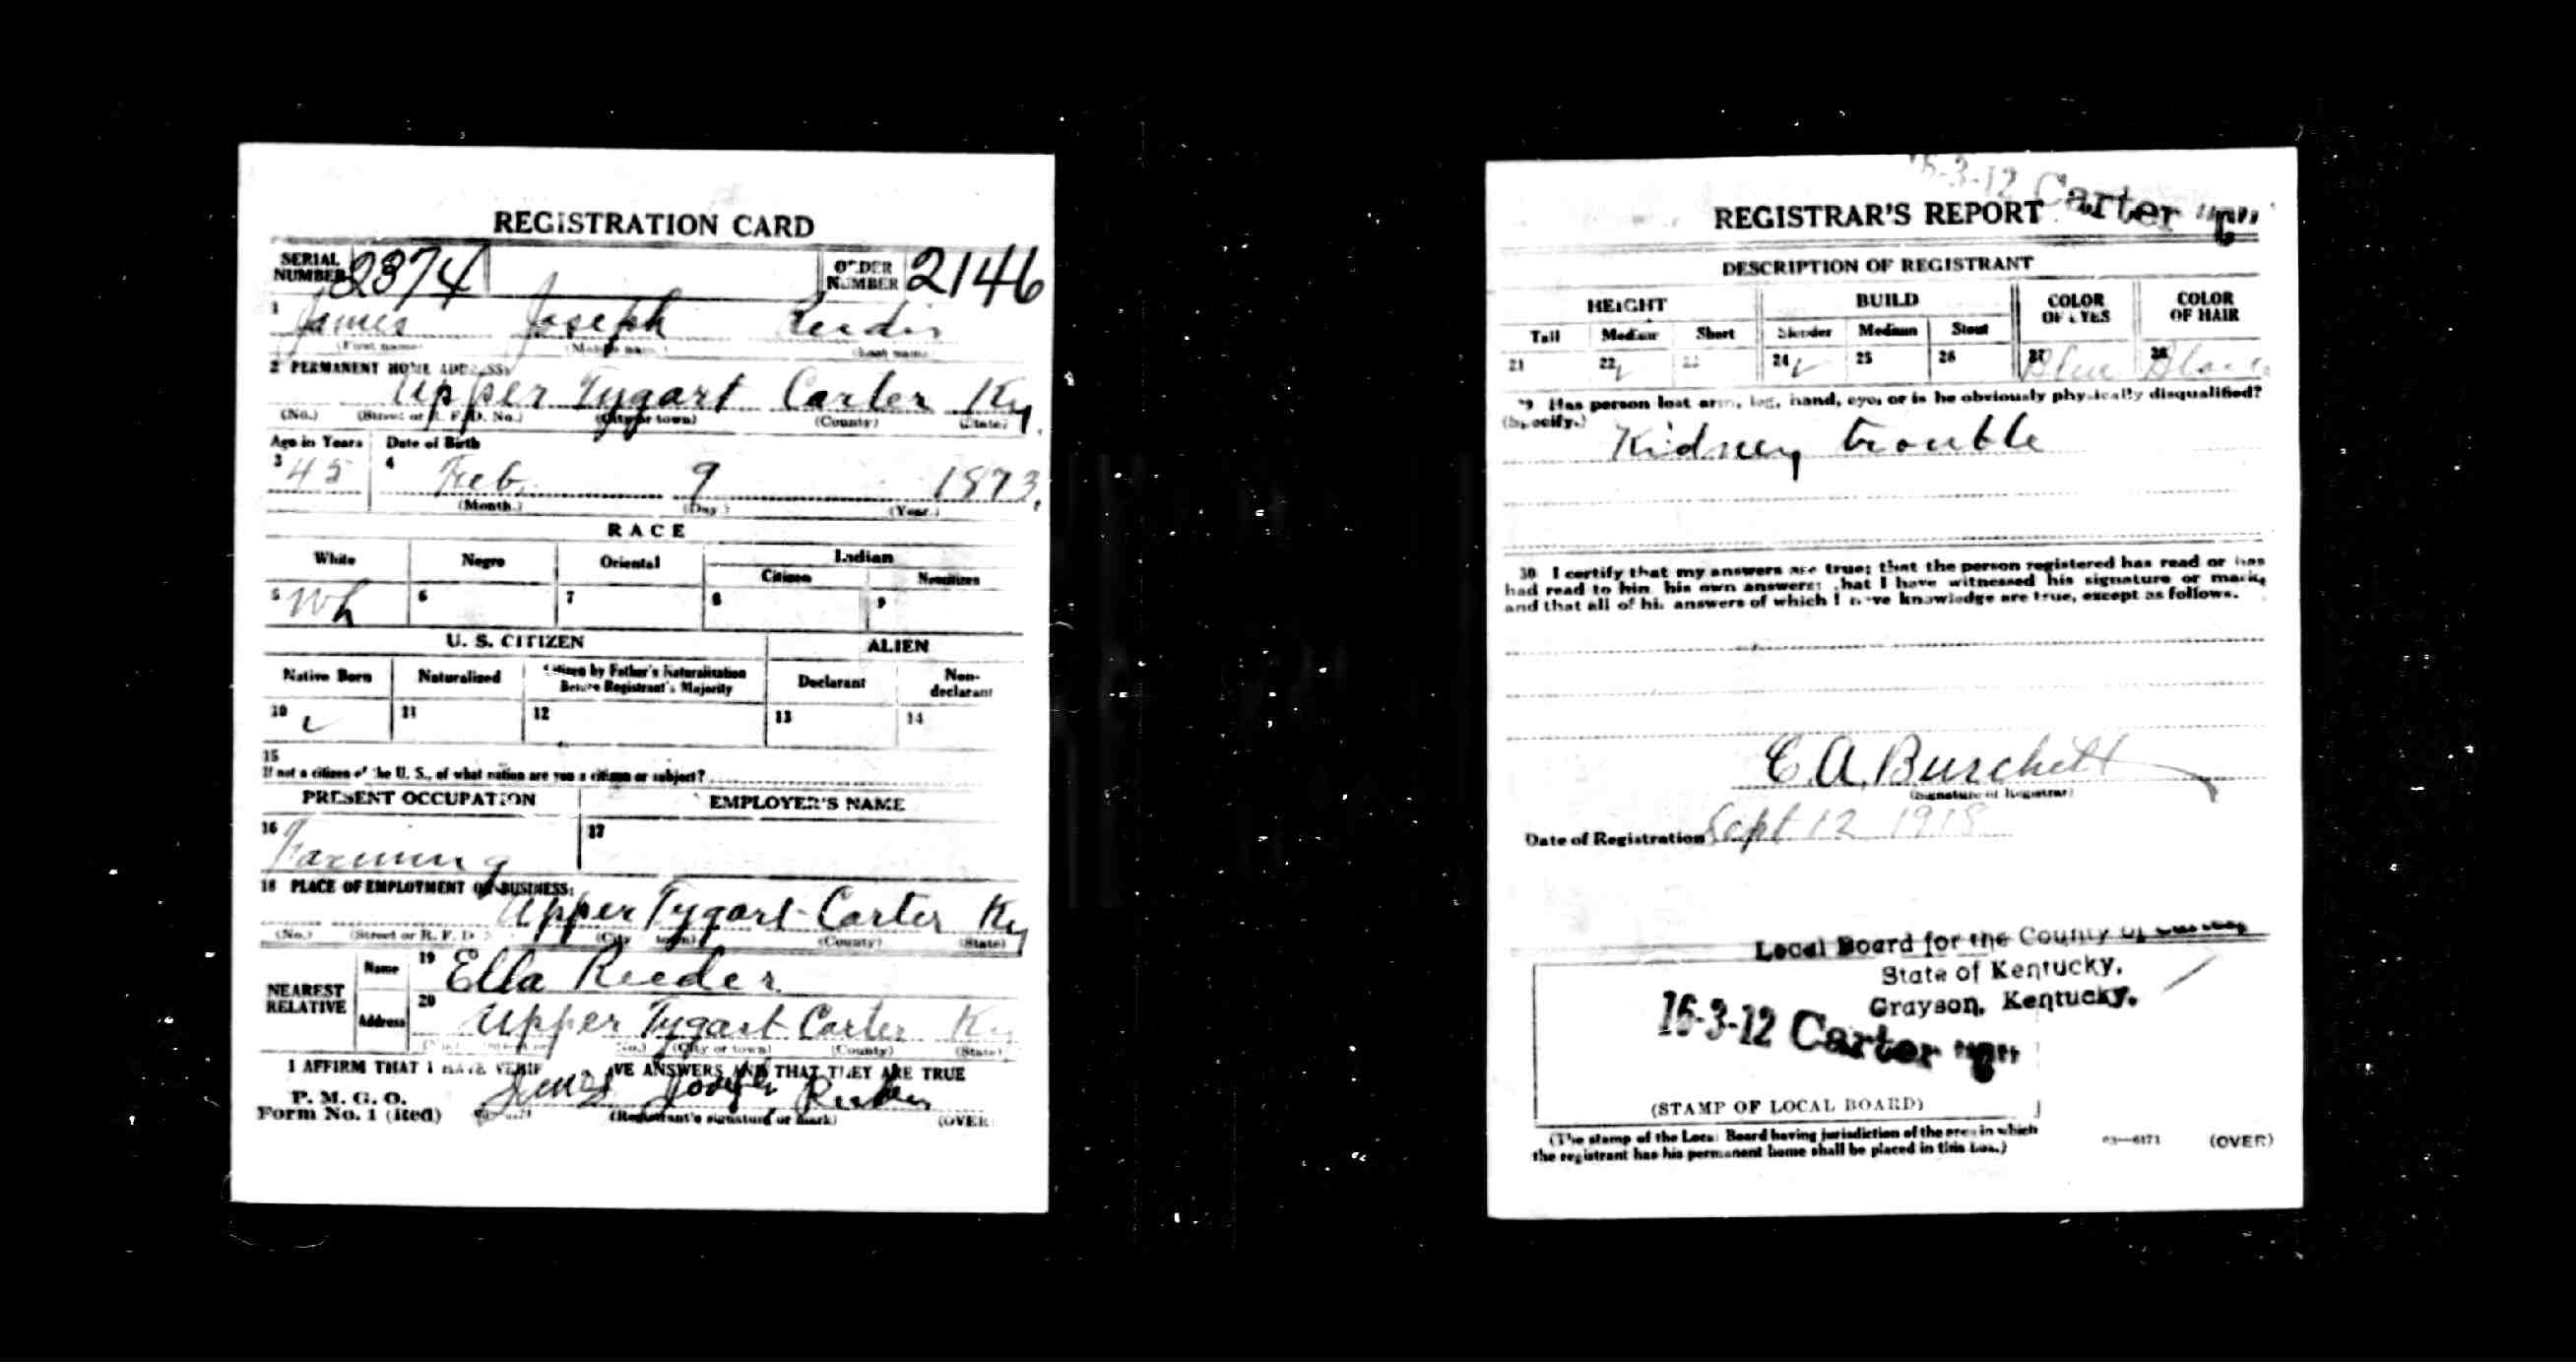 REGISTRATION CARD
SERIAL NUMBER 2374 ORDER NUMBER 2146
1 James Joseph Reeder
(First name) (Middle name) (Last name)
2 PERMANENT HOME ADDRESS:
Upper Tygart Carter Ky.
(No.) (Street or R. F. D. No.) (City or town) (County) (State)
Age in Years Date of Birth
3 45 4 Feb. 9 1873.
(Month.) (Day.) (Year.)
RACE
White Negro Oriental Indian
Citizen Noncitizen
5 Wh 6 7 8 9
U. S. CITIZEN ALIEN
Native Born Naturalized Citizen by Father's Naturalization Before Registrant's Majority Declarant Non-declarant
10 11 12 13 14
15
If not a citizen of the U. S., of what nation are you a citizen or subject?
PRESENT OCCUPATION EMPLOYER'S NAME
16 Farming 17
18 PLACE OF EMPLOYMENT OR BUSINESS:
Upper Tygart Carter Ky
(No.) (Street or R. F. D. (City town) (County) (State)
NEAREST RELATIVE Name 19 Ella Reeder
Address 20 Upper Tygart Carter Ky
(No.) (City or town) (County) (State)
I AFFIRM THAT I HAVE VERIF VE ANSWERS AND THAT THEY ARE TRUE
P. M. G. O.
Form No. 1 (Red) James Joseph Reeder
(Registrant's signature or mark) (OVER)
15-3-12 Carter "C"
REGISTRAR'S REPORT
DESCRIPTION OF REGISTRANT
HEIGHT BUILD COLOR OF EYES COLOR OF HAIR
Tall Medium Short Slender Medium Stout
21 22 23 24 25 26 27 Blue 28 Black
29 Has person lost arm, leg, hand, eye, or is he obviously physically disqualified?
(Specify.) Kidney trouble
30 I certify that my answers are true; that the person registered has read or has
had read to him his own answers; that I have witnessed his signature or mark,
and that all of his answers of which I have knowledge are true, except as follows.
E. A. Burchett
(Signature of Registrar)
Date of Registration Sept 12 1918
Local Board for the County of
State of Kentucky,
Grayson, Kentucky.
15-3-12 Carter "C"
(STAMP OF LOCAL BOARD)
(The stamp of the Local Board having jurisdiction of the area in which
the registrant has his permanent home shall be placed in this box.)
03—6171 (OVER)